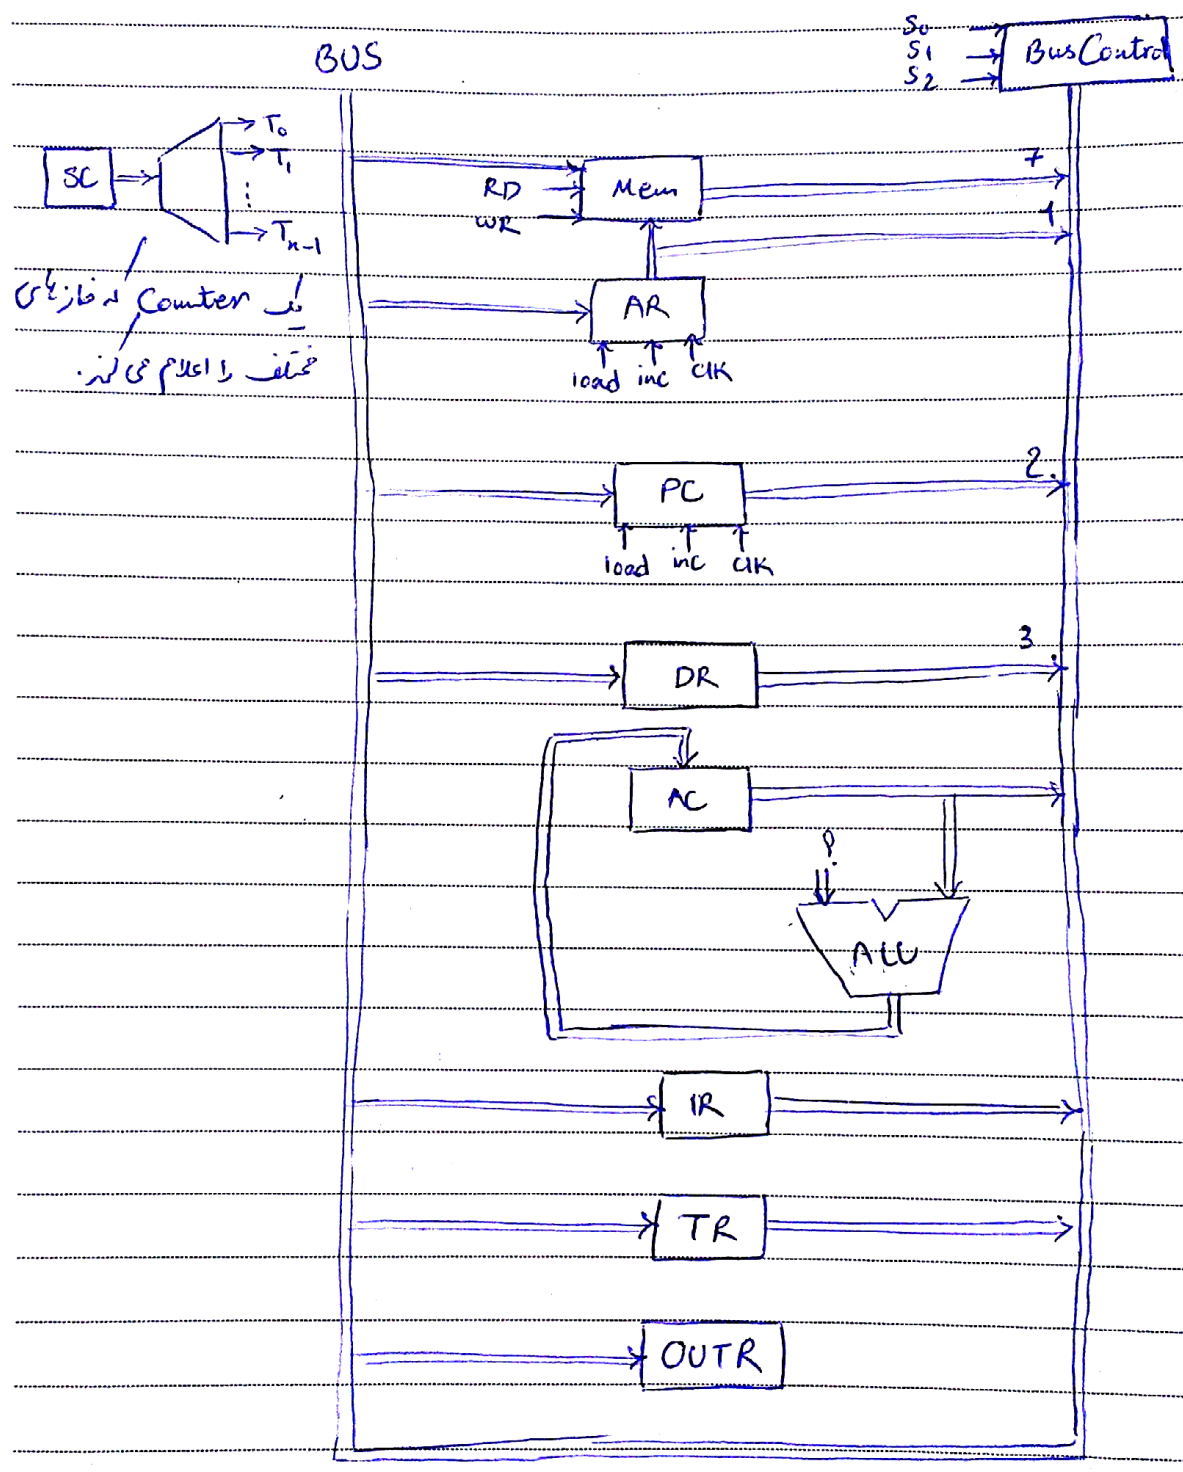 BUS
S0
S1
S2
Bus Control
SC
T0
T1
⋮
Tn-1
یک Counter که فازهای
مختلف را اعلام می کند.
RD
WR
Mem
7
1
AR
load inc clk
PC
2
load inc clk
DR
3
AC
?
ALU
IR
TR
OUTR